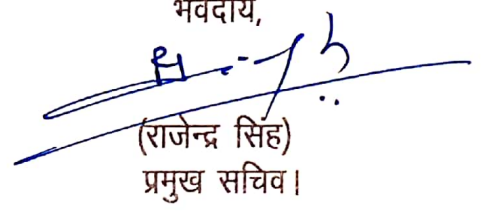 भवदीय,
(राजेन्द्र सिंह)
प्रमुख सचिव।